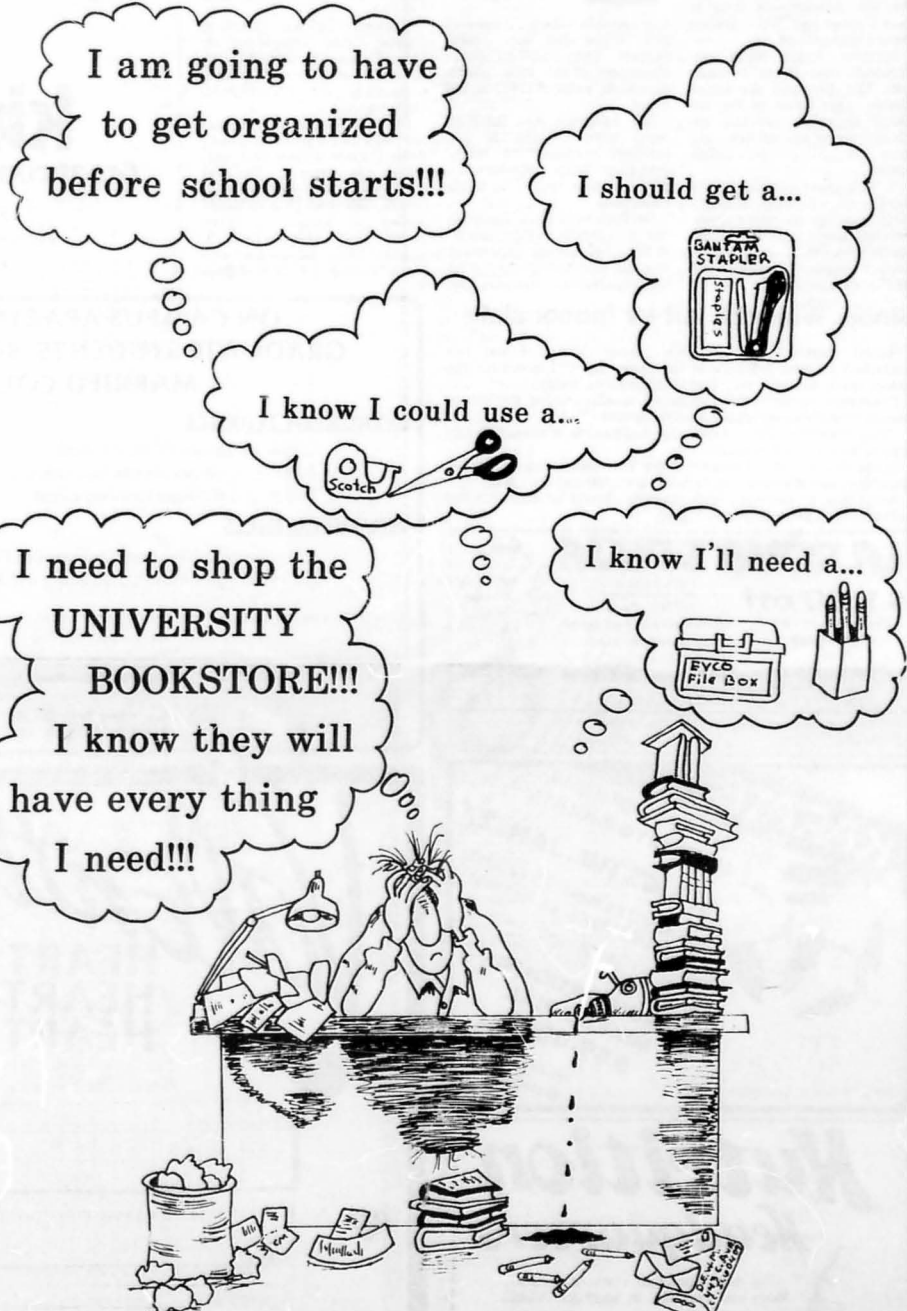 I am going to have
to get organized
before school starts!!!
I should get a...
BANTAM
STAPLER
Staples
I know I could use a...
Scotch
I need to shop the
UNIVERSITY
BOOKSTORE!!!
I know they will
have every thing
I need!!!
I know I'll need a...
File Box